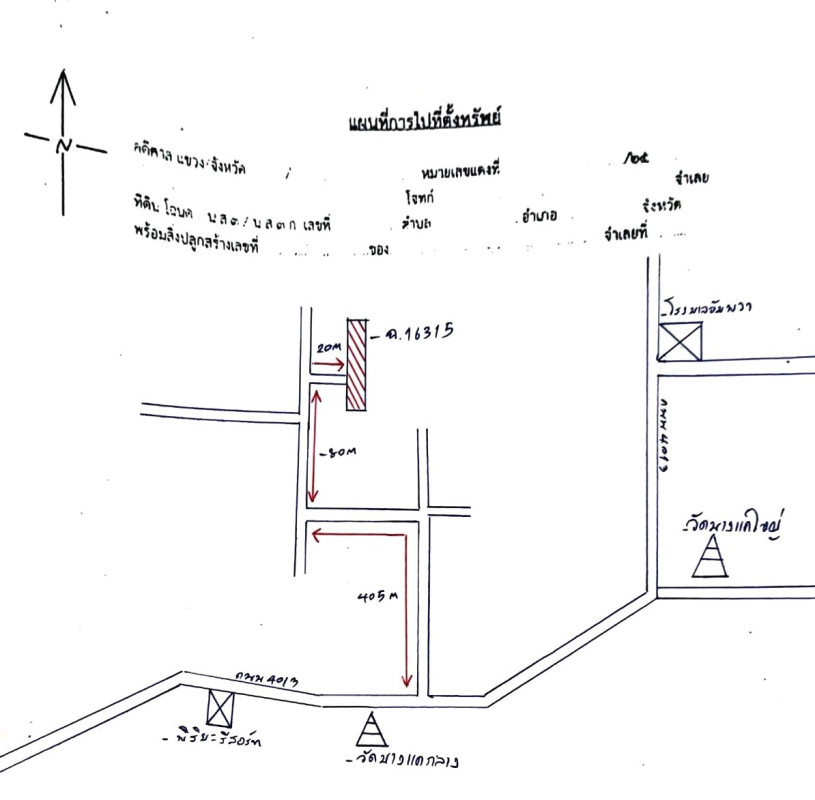 แผนที่การไปที่ตั้งทรัพย์
N
คดีศาล แขวง/จังหวัด / หมายเลขแดงที่ /๒๕
โจทก์ จำเลย
ที่ดิน โฉนด น ส ๓ / น ส ๓ ก เลขที่ ตำบล อำเภอ จังหวัด
พร้อมสิ่งปลูกสร้างเลขที่ ของ จำเลยที่
- โรงพยาบาลอัมพวา
20M
- ฉ.16315
ถนน 4013
- 80M
- วัดบางแคใหญ่
405 M
ถนน 4013
- วัดบางแคกลาง